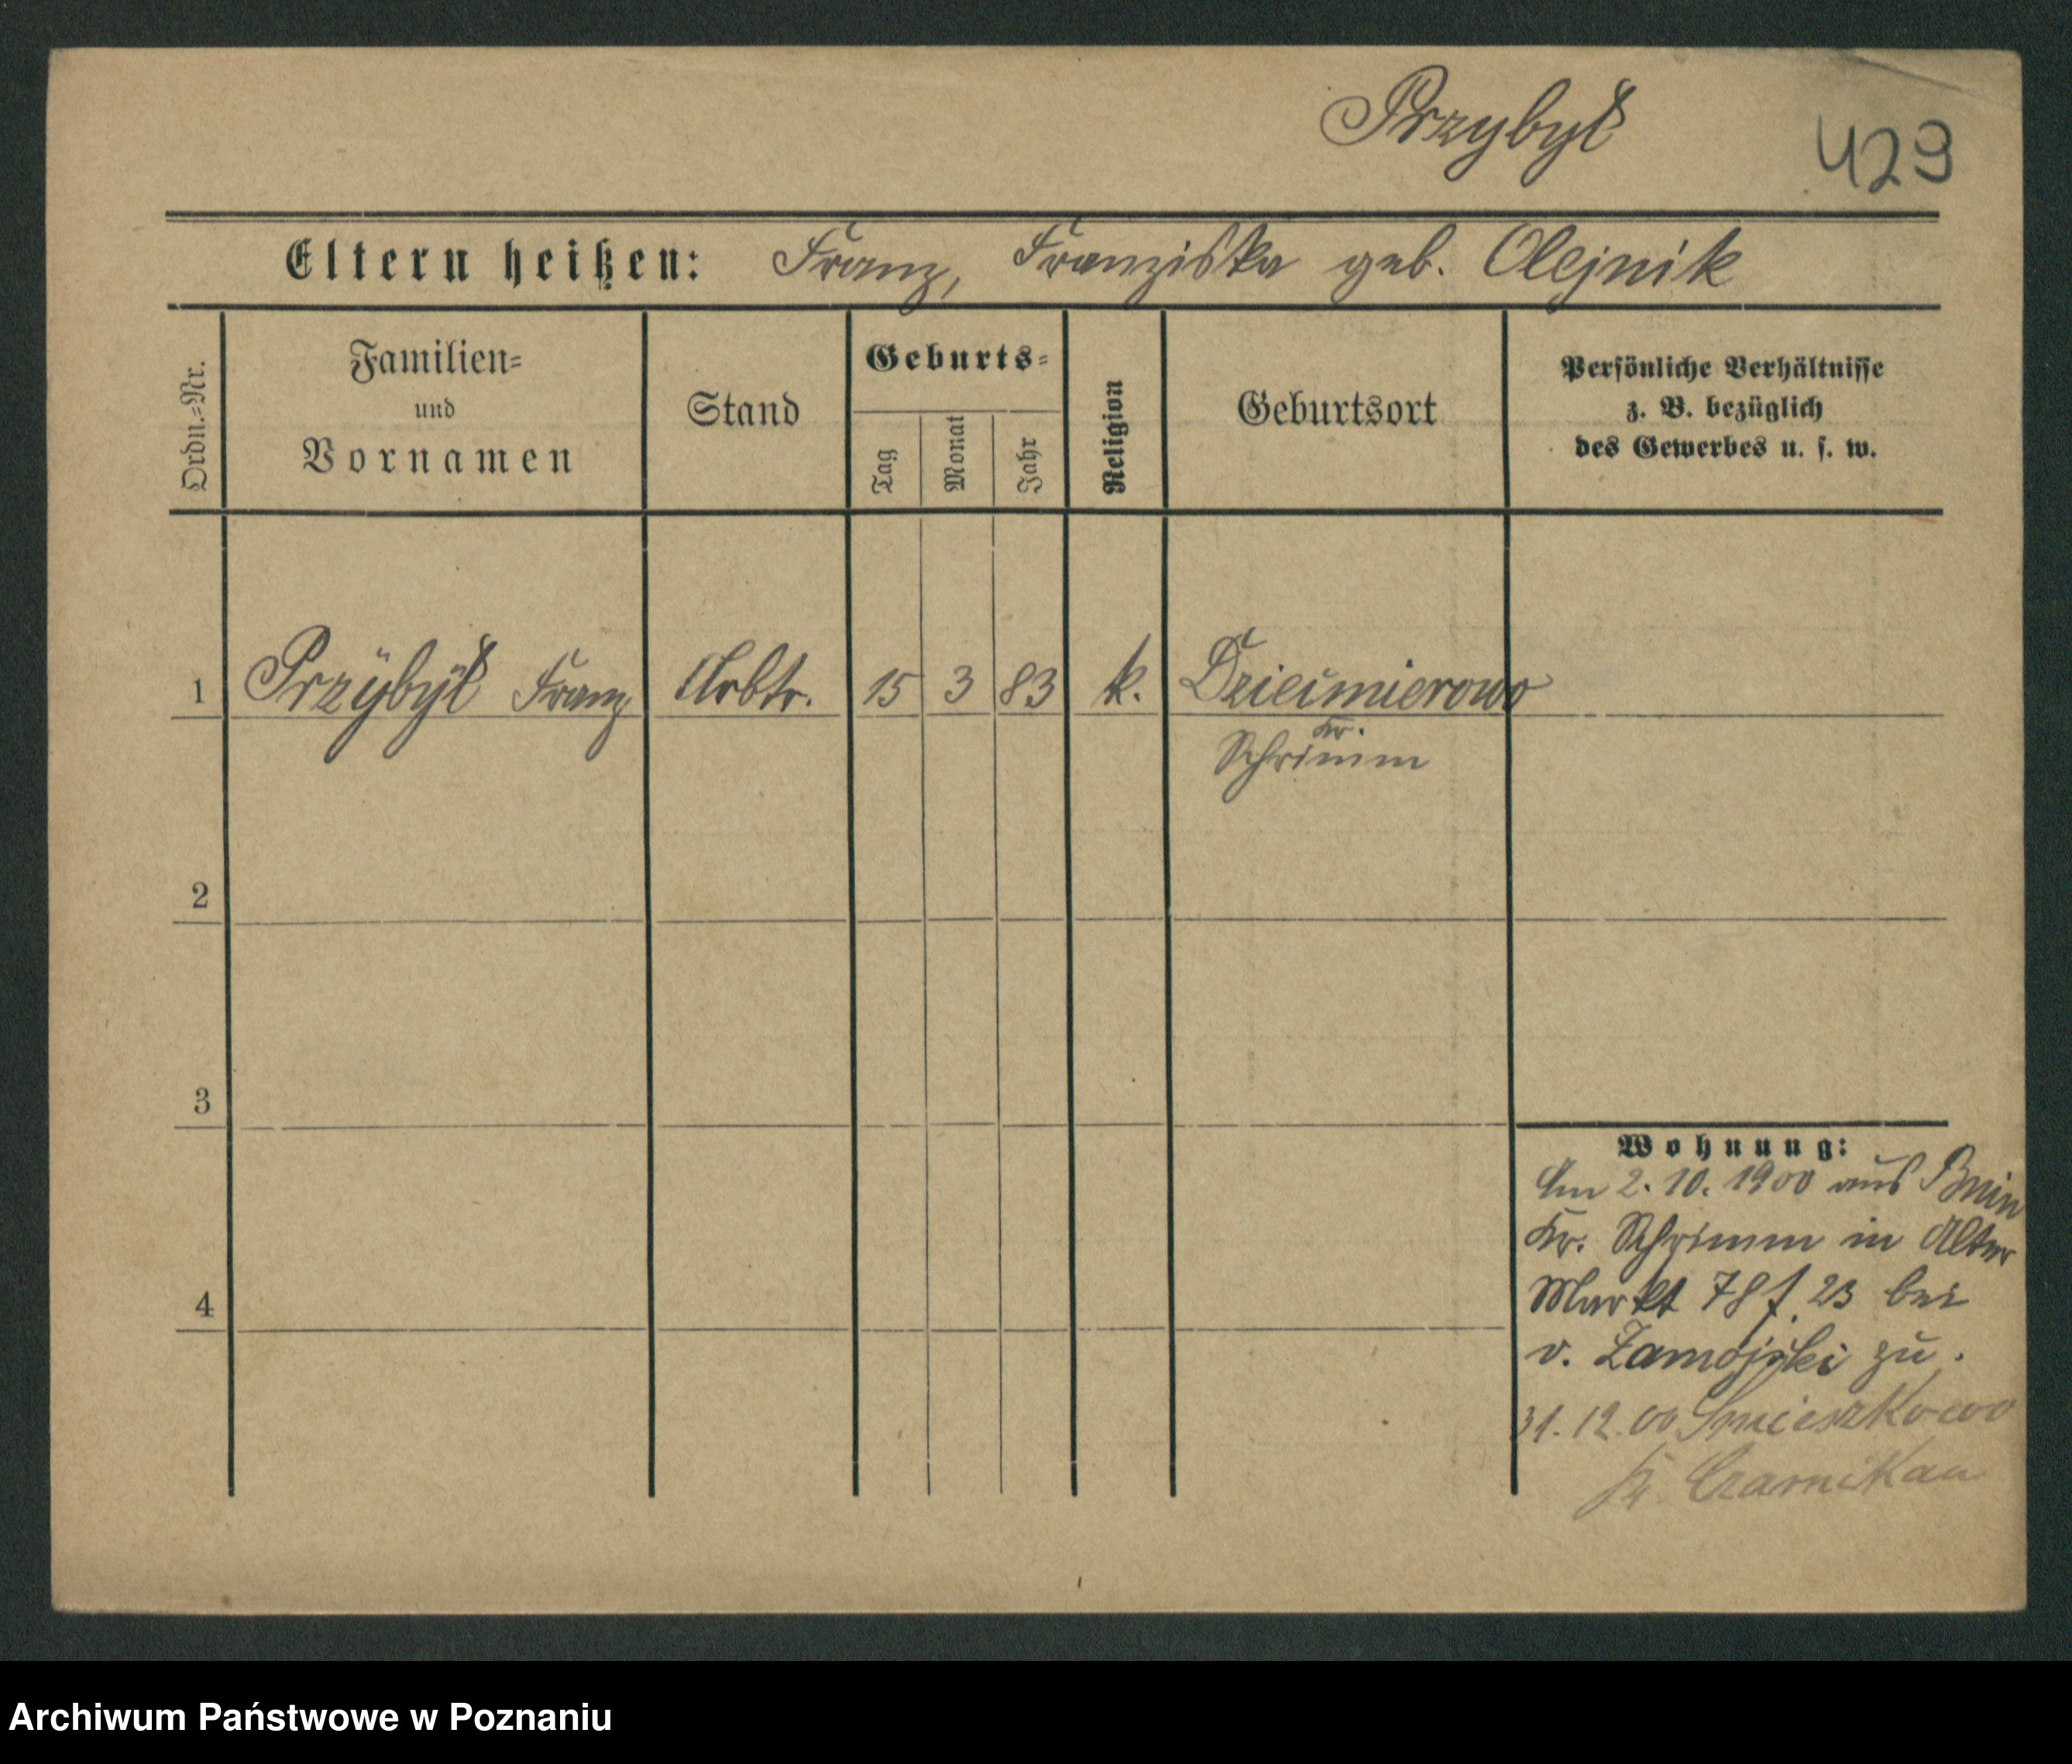 Przybył
429
Eltern heißen: Franz, Franziska geb. Olejnik
Ordn.=Nr.
Familien=
und
Vornamen
Stand
Geburts=
Tag
Monat
Jahr
Religion
Geburtsort
Persönliche Verhältnisse
z. B. bezüglich
des Gewerbes u. s. w.
1 Przÿbÿł Franz Arbtr. 15 3 83 k. Dziećmierowo
Kr.
Schrimm
2
3
4
Wohnung:
Am 2. 10. 1900 aus Bnin
Kr. Schrimm in Alter
Markt 78 23 bei
v. Zamojski zu.
31. 12. 00 Smieszkowo
Czarnikau
Archiwum Państwowe w Poznaniu